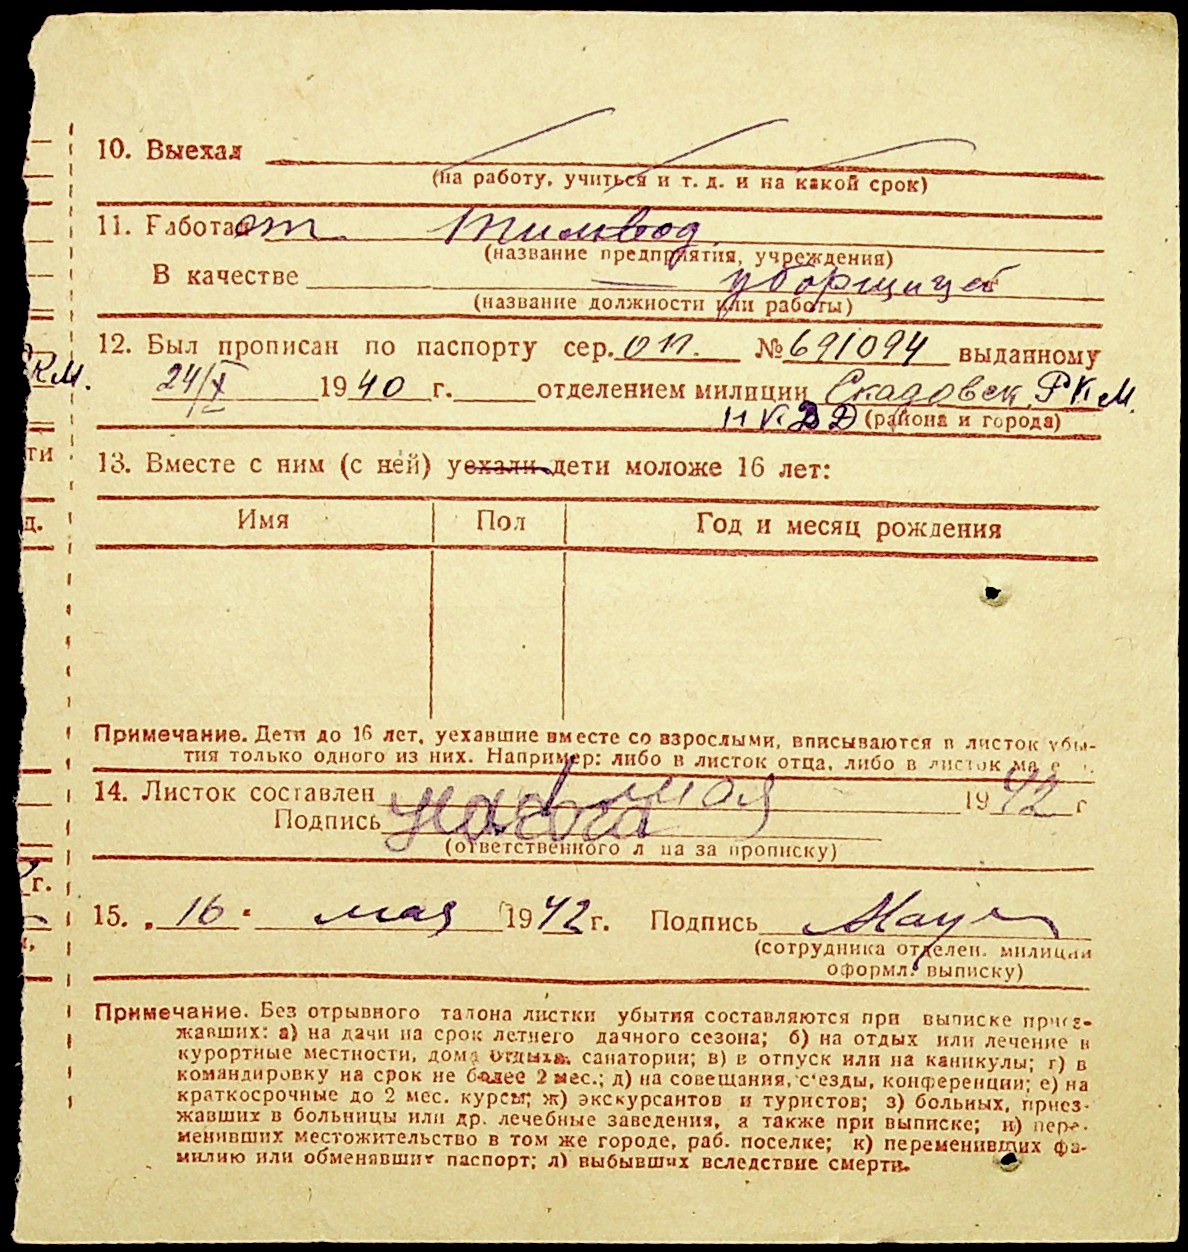 10. Выехал
(на работу, учиться и т. д. и на какой срок)
11. Работает
(название предприятия, учреждения)
В качестве уборщицей
(название должности или работы)
12. Был прописан по паспорту сер. ОП. № 691094 выданному
Р.К.М. 24/X 1940 г. отделением милиции Скадовск. РКМ.
НКВД (района и города)
ти
13. Вместе с ним (с ней) уехали дети моложе 16 лет:
д. Имя Пол Год и месяц рождения
Примечание. Дети до 16 лет, уехавшие вместе со взрослыми, вписываются в листок убы-
тия только одного из них. Например: либо в листок отца, либо в листок
14. Листок составлен мая 1942 г
Подпись
(ответственного лица за прописку)
г.
15. „16" мая 1942 г. Подпись
(сотрудника отделен. милиции
оформл. выписку)
Примечание. Без отрывного талона листки убытия составляются при выписке приез-
жавших: а) на дачи на срок летнего дачного сезона; б) на отдых или лечение в
курортные местности, дома отдыха, санатории; в) в отпуск или на каникулы; г) в
командировку на срок не более 2 мес.; д) на совещания, с'езды, конференции; е) на
краткосрочные до 2 мес. курсы; ж) экскурсантов и туристов; з) больных, приез-
жавших в больницы или др. лечебные заведения, а также при выписке; и) пере-
менивших местожительство в том же городе, раб. поселке; к) переменивших фа-
милию или обменявших паспорт; л) выбывших вследствие смерти.